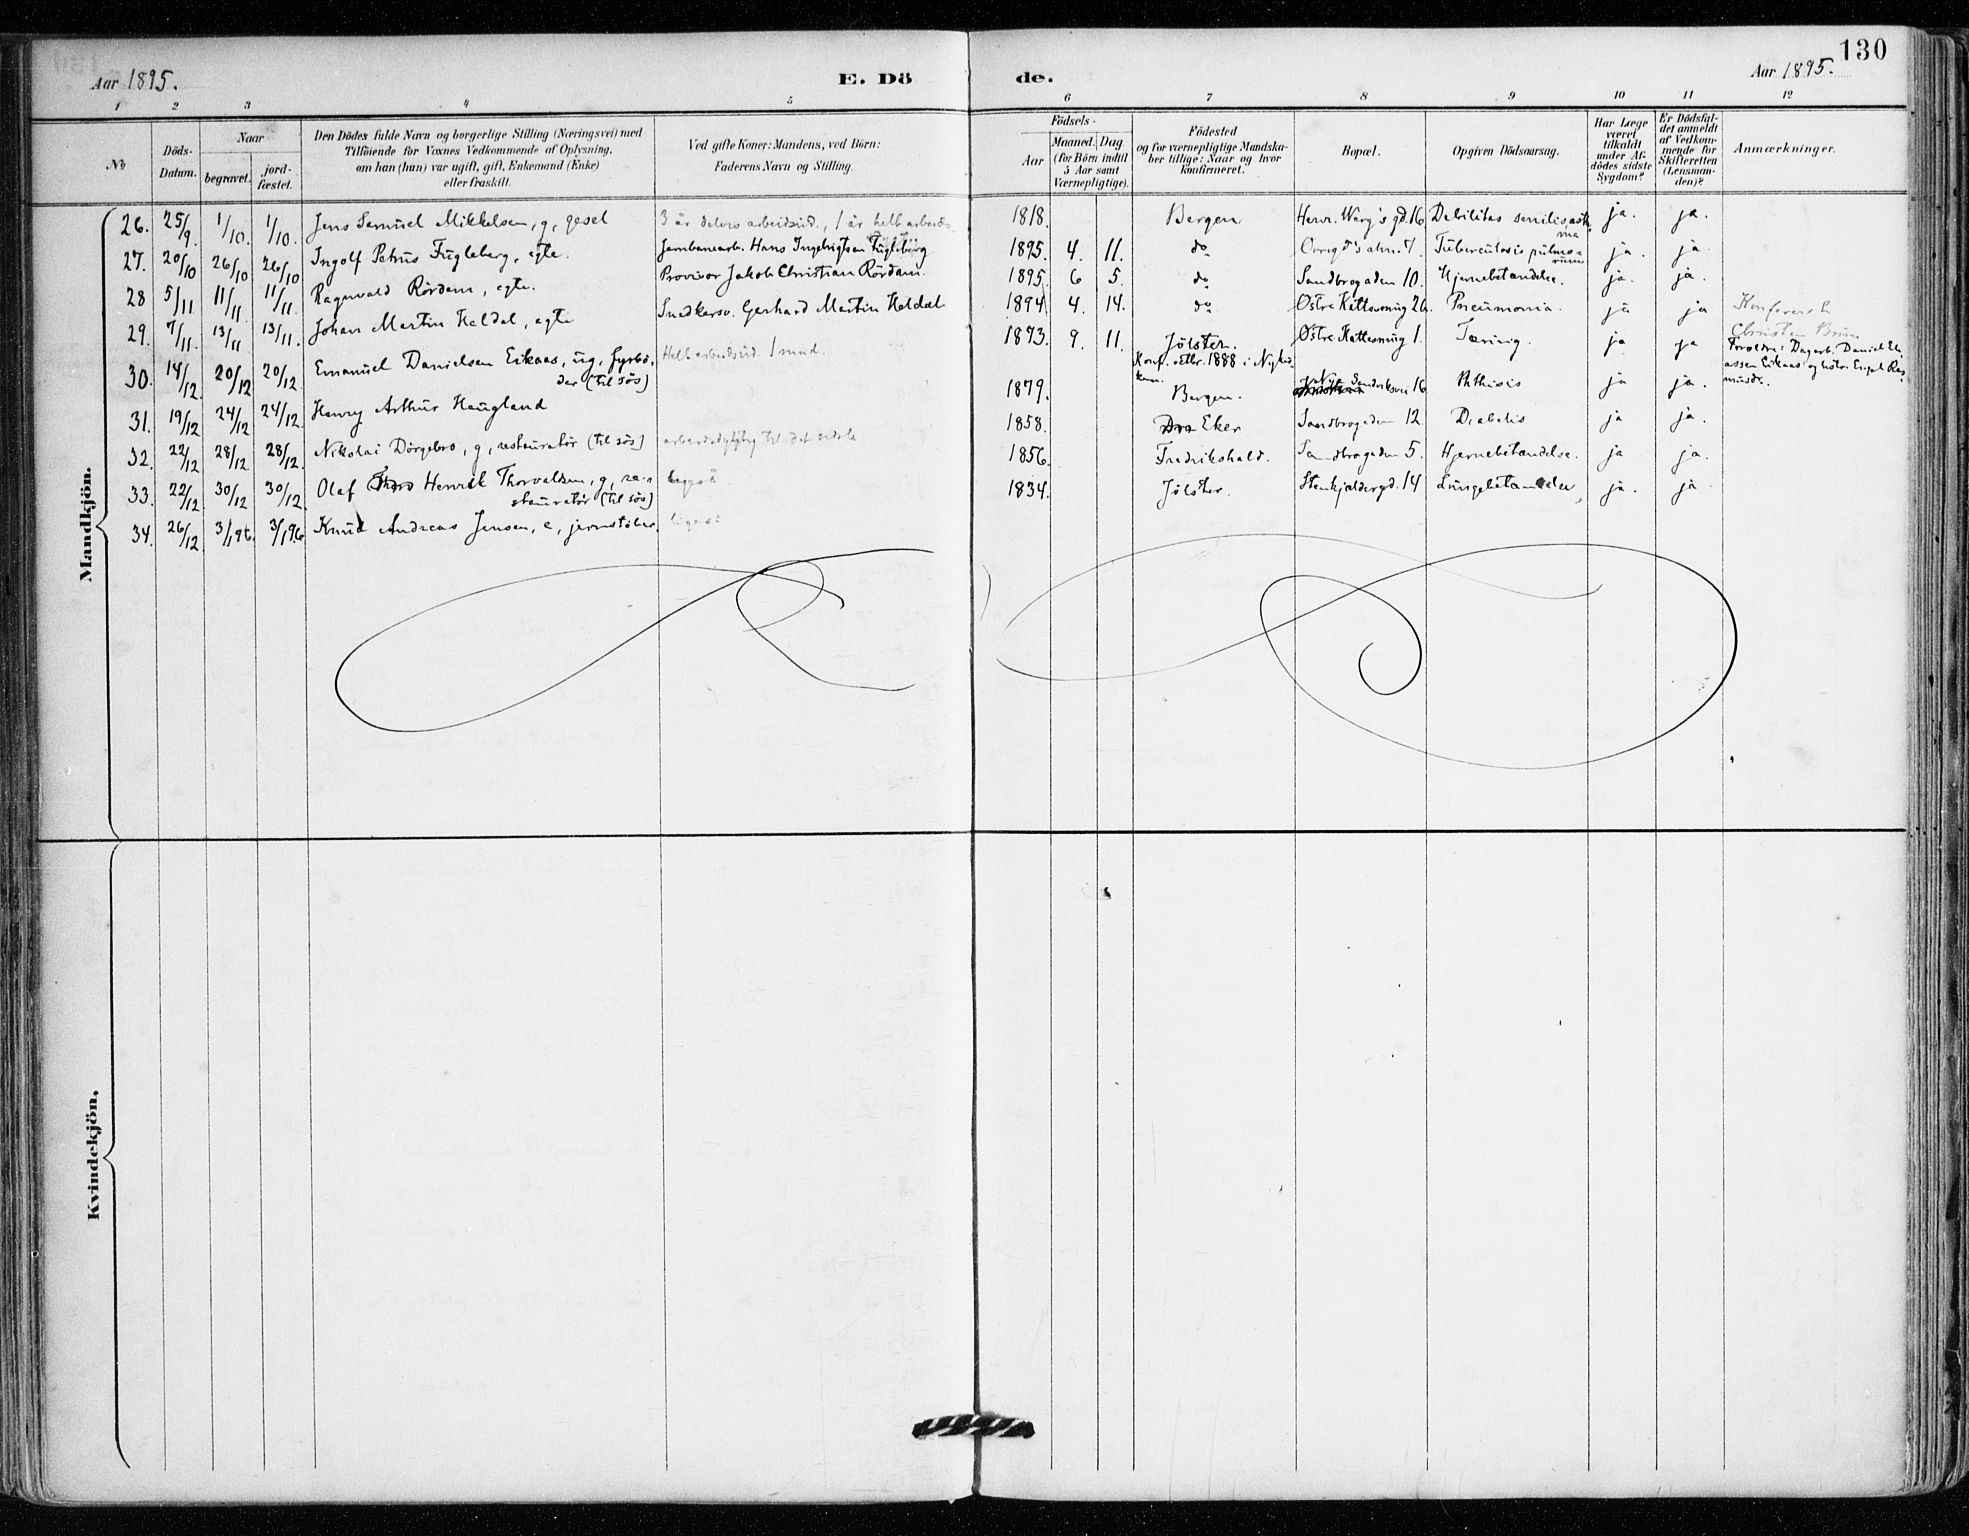 130
Aar 1895. E. Dö de. Aar 1895.
1 2 3 4 5 6 7 8 9 10 11 12
№
Döds-Datum.
Naar
begravet.
jord-fæstet.
Den Dödes fulde Navn og borgerlige Stilling (Næringsvei) med
Tilföiende for Voxnes Vedkommende af Oplysning,
om han (hun) var ugift, gift, Enkemand (Enke)
eller fraskilt.
Ved gifte Koner: Mandens, ved Börn:
Faderens Navn og Stilling.
Födsels-
Aar
Maaned. Dag
(for Börn indtil
5 Aar samt
Værnepligtige).
Födested
og for værnepligtige Mandska-
ber tillige: Naar og hvor
konfirmeret.
Bopæl.
Opgiven Dödsaarsag.
Har Læge
været
tilkaldt
under Af-
dödes sidste
Sygdom?
Er Dödsfal-
det anmeldt
af Vedkom-
mende for
Skifteretten
(Lensman-
den)?
Anmærkninger.
Mandkjön.
26. 25/9. 1/10. 1/10. Jens Samuel Mikkelsen, g, gesel 3 år delvis arbeidsud., 1 år helt arbeids. 1818. Bergen Henr. Wergs gd. 16 Debilitas senilis, astma ja. ja.
27. 20/10 26/10 26/10 Ingolf Petrus Fugleberg, egte. Jernbanearb. Hans Ingebrigtsen Fugleberg 1895. 4. 11. do 7. Tuberculosis pulmonum ja. ja.
28 5/11 11/11 11/11. Ragnvald Rördam, egte. Provisor Jakob Christian Rördam. 1895. 6 5. do Sandbrogaden 10. Hjernebetændelse. ja. ja.
29. 7/11. 13/11 13/11. Johan Martin Heldal, egte Snedkersv. Gerhard Martin Heldal 1894. 4. 14. do Østre Kattesmug 26. Pneumonia. ja ja
30. 14/12 20/12 20/12 Emanuel Danielsen Eikaas, ug, fyrbö-
der (til sös) Helt arbeidsud. 1 mnd. 1873. 9. 11. Jölster. Østre Kattesmug 1. Tæring. ja ja
Konf. oktbr. 1888 i Nykir-
ken.
Konfererest
Christen Brun
Foreldre: Dagarb. Daniel El-
assen Eikaas og hstr. Engel Ras-
musd.
31. 19/12 24/12 24/12 Henry Arthur Haugland 1879. Bergen. Nye Sandviksvei 16 Phthisis ja ja.
32. 22/12 28/12 28/12. Nikolai Dörgebro, g, restauratör (til sös) arbeidsdygtig til det sidste 1858. Eker Sandbrogaden 12. Diabetis ja ja.
33. 22/12 30/12 30/12. Olaf Henrik Thorvaldsen, g, re-
stauratör (til sös) 1856. Fredrikshald. Sandbrogaden 5. Hjernebetændelse. ja ja.
34. 26/12 3/1 96. 3/1 96 Knud Andreas Jensen, e, jernstöber. ligeså 1834. Jölster. Stenkjeldergd. 14 Lungebetændelse ja. ja
Kvindekjön.